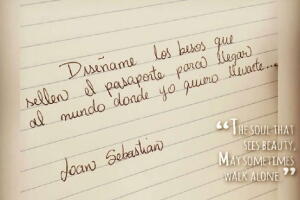 Diseñame los besos que
sellen el pasaporte para llegar
al mundo donde yo quiero llevarte...
Joan Sebastian
“THE SOUL THAT
SEES BEAUTY,
MAY SOMETIMES
WALK ALONE”